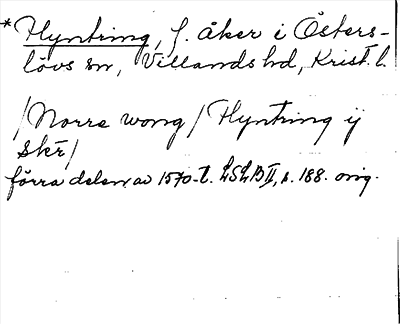 *Hyntring, f. åker i Östers-
lövs sn, Villands hd, Krist. l.
/Norre wong/ Hyntring ij
skr/
förra delen av 1570-t. LSLB II, s. 188. orig.